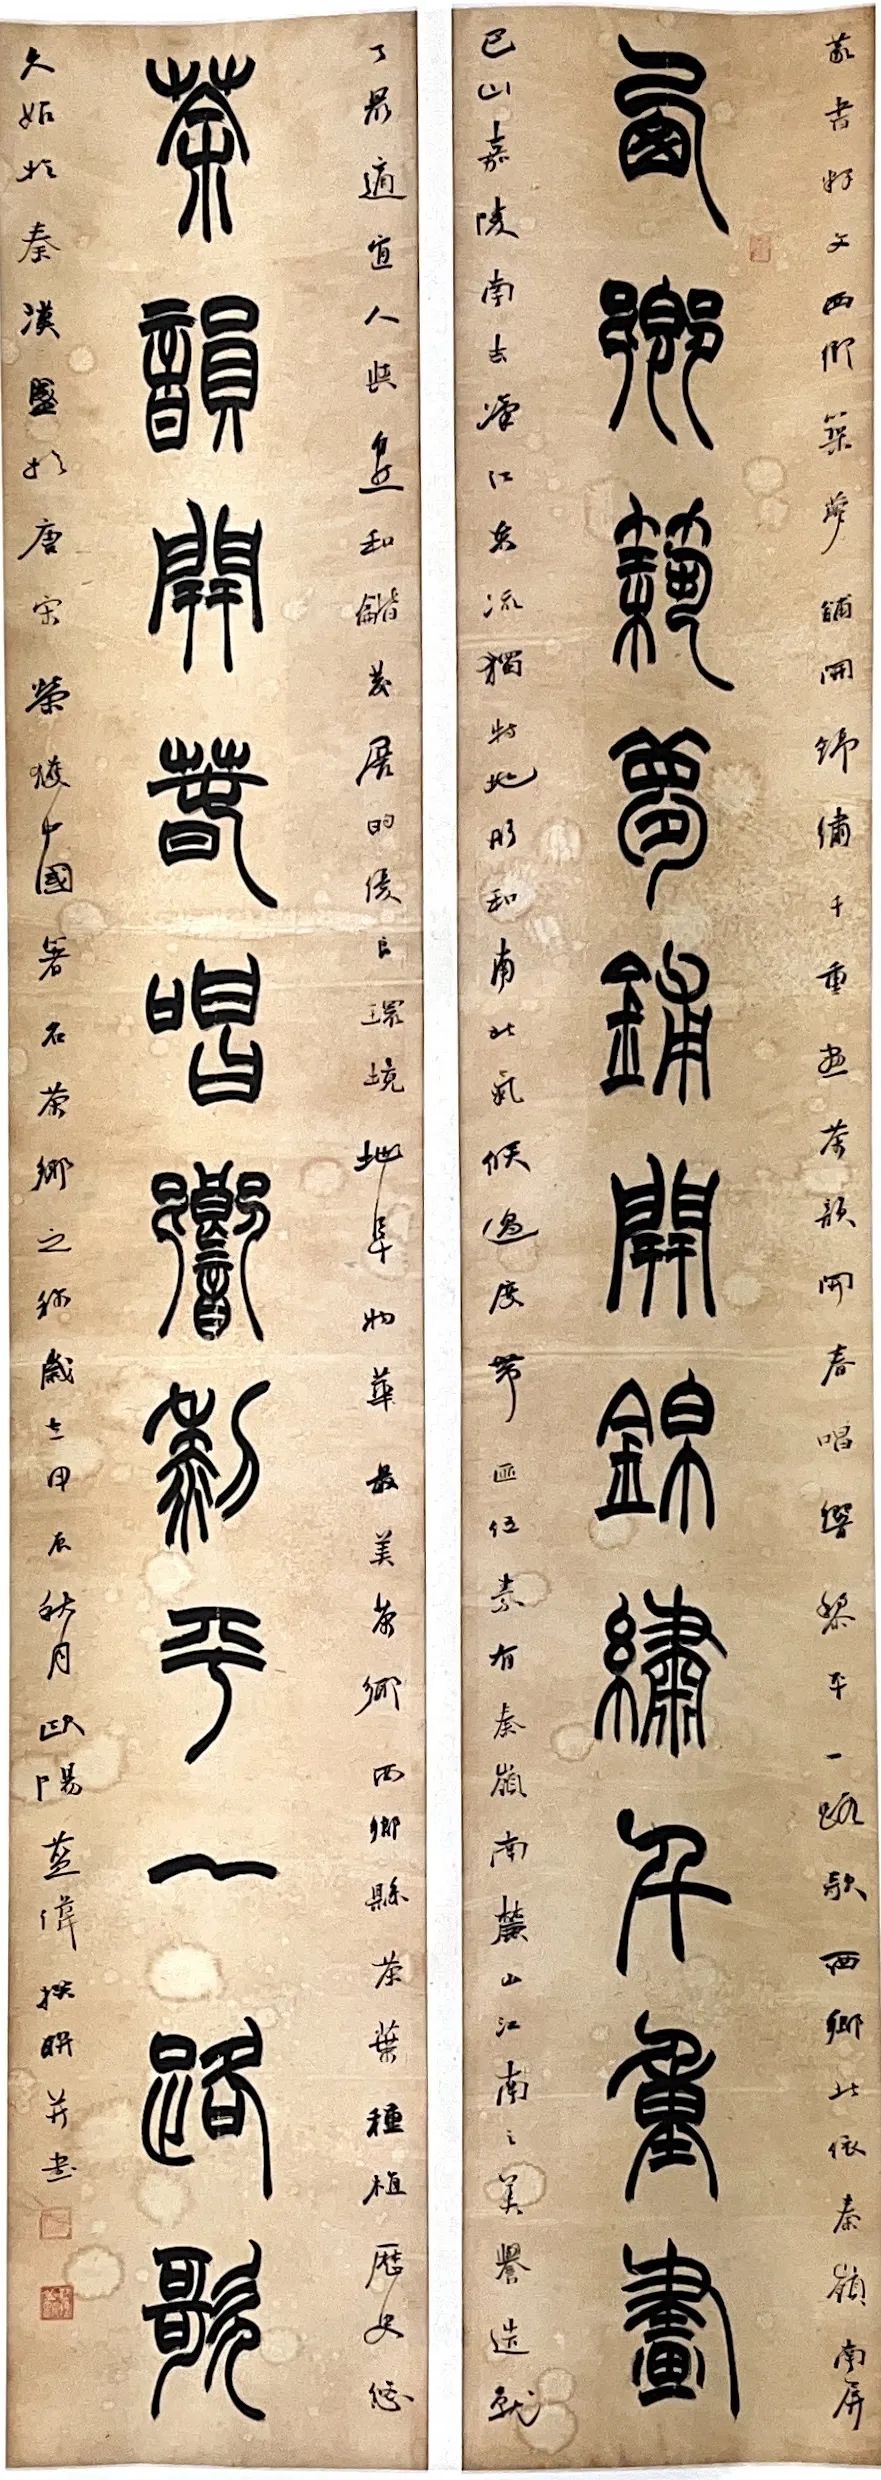 篆書釋文西鄉築夢鋪開錦繡千重畫茶韻開春唱響黎平一路歌西鄉北依秦嶺南屏
西鄉築夢鋪開錦繡千重畫
巴山嘉陵南去漢江東流獨特地形和南北氣候過度帶區位素有秦嶺南麓小江南之美譽造就
了最適宜人與自然和龤居的優良環境地阜物華最美茶鄉西鄉縣茶葉種植歷史悠
茶韻開春唱響黎平一路歌
久始於秦漢盛於唐宋榮獲中國著名茶鄉之稱歲在甲辰秋月歐陽偉撰聯并書